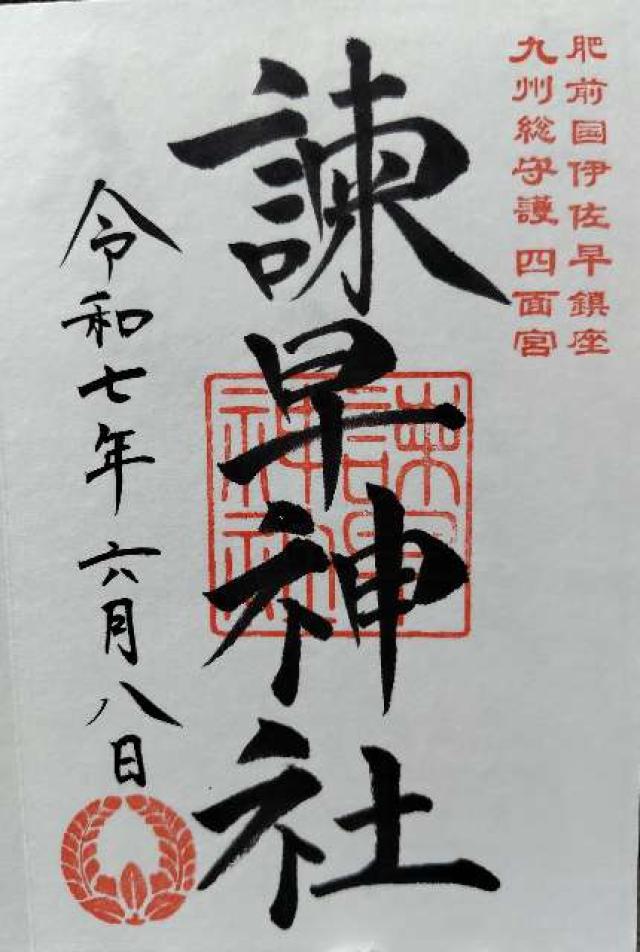 肥前国伊佐早鎮座
九州総守護 四面宮
諫早神社
諫早神社
令和七年六月八日